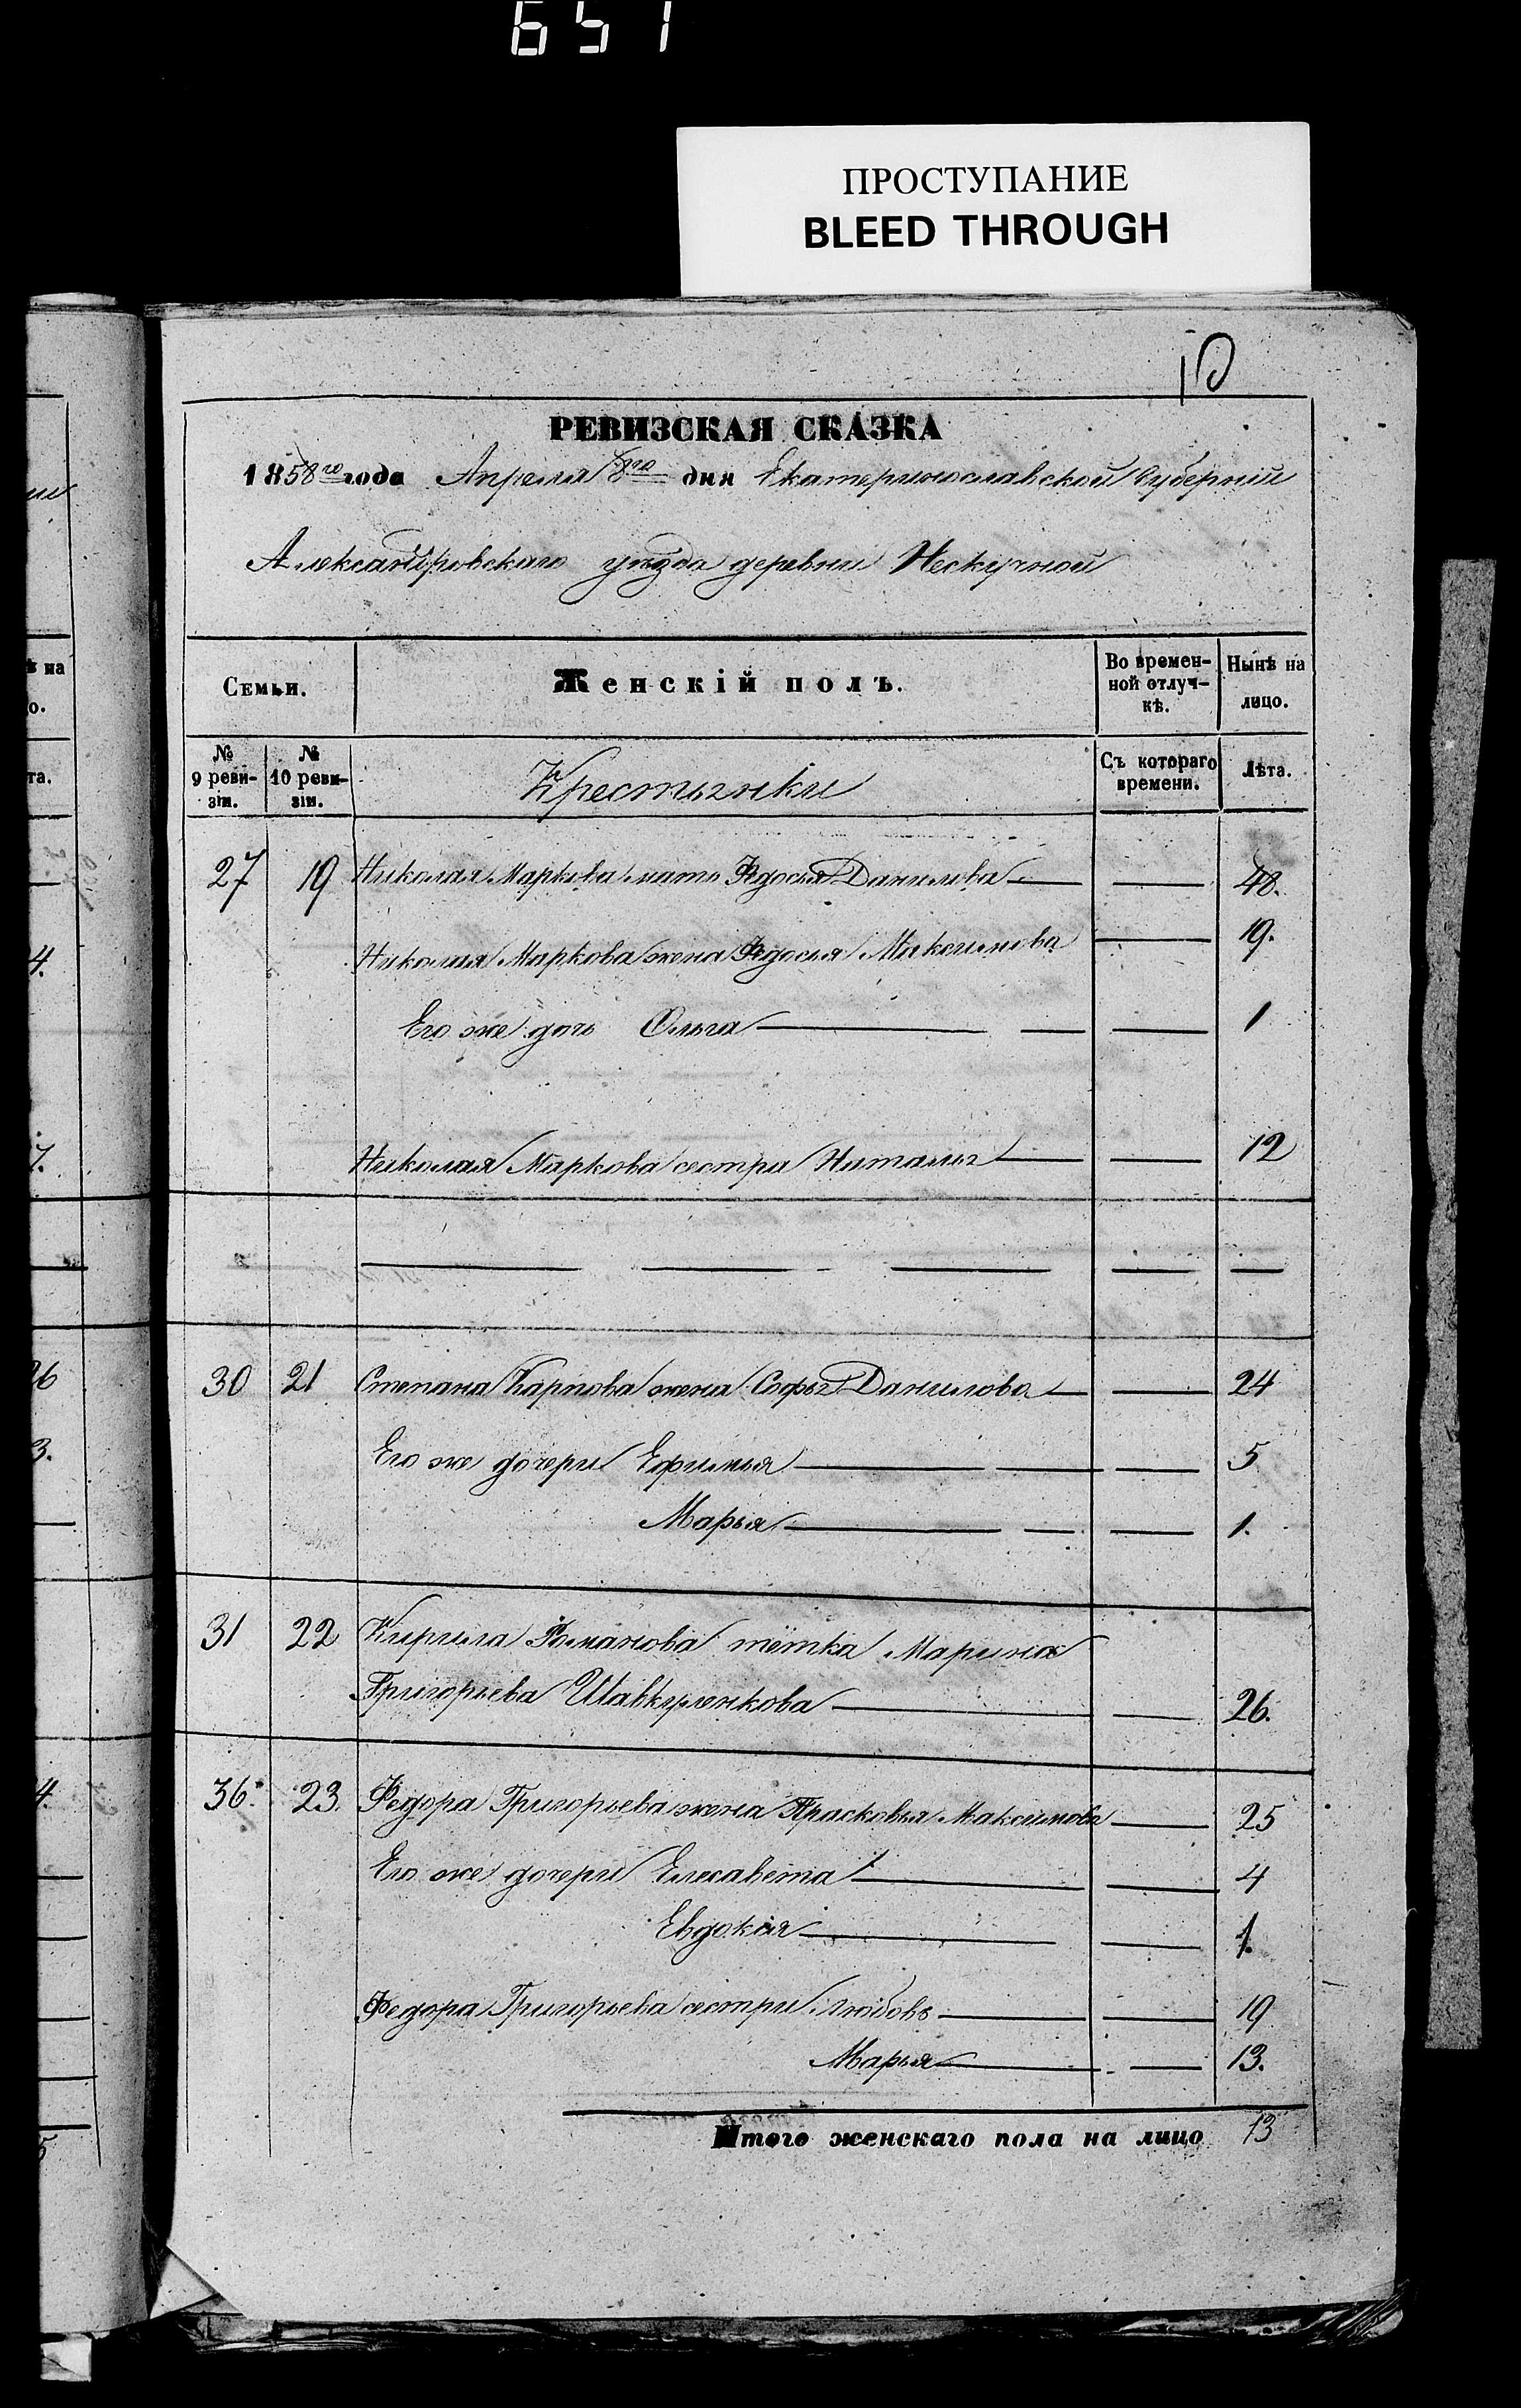 651
ПРОСТУПАНИЕ
BLEED THROUGH
10
РЕВИЗСКАЯ СКАЗКА
1858го года Апреля 8го дня Екатеринославской Губерніи
Александровскаго уѣзда деревни Нескучной
Семьи. Женскій полъ. Во времен- Нынѣ на
ной отлуч- лицо.
кѣ.
№ № Съ котораго Лѣта.
9 реви- 10 реви- Крестьянки времени.
зіи. зіи.
27 19 Николая Маркова мать Федосья Данилова 48.
Николая Маркова жена Федосья Максимова 19.
Его же дочь Ольга 1
Николая Маркова сестра Наталья 12
30 21 Степана Карпова жена Софья Данилова 24
Его же дочери Ефимья 5
Марья 1.
31 22 Кирила Романова тётка Марина
Григорьева Шавкуленкова 26.
36. 23. Федора Григорьева жена Прасковья Максимова 25
Его же дочери Елисавета 4
Евдокія 1.
Федора Григорьева сестры Любовь 19
Марья 13.
Итого женскаго пола на лицо 13